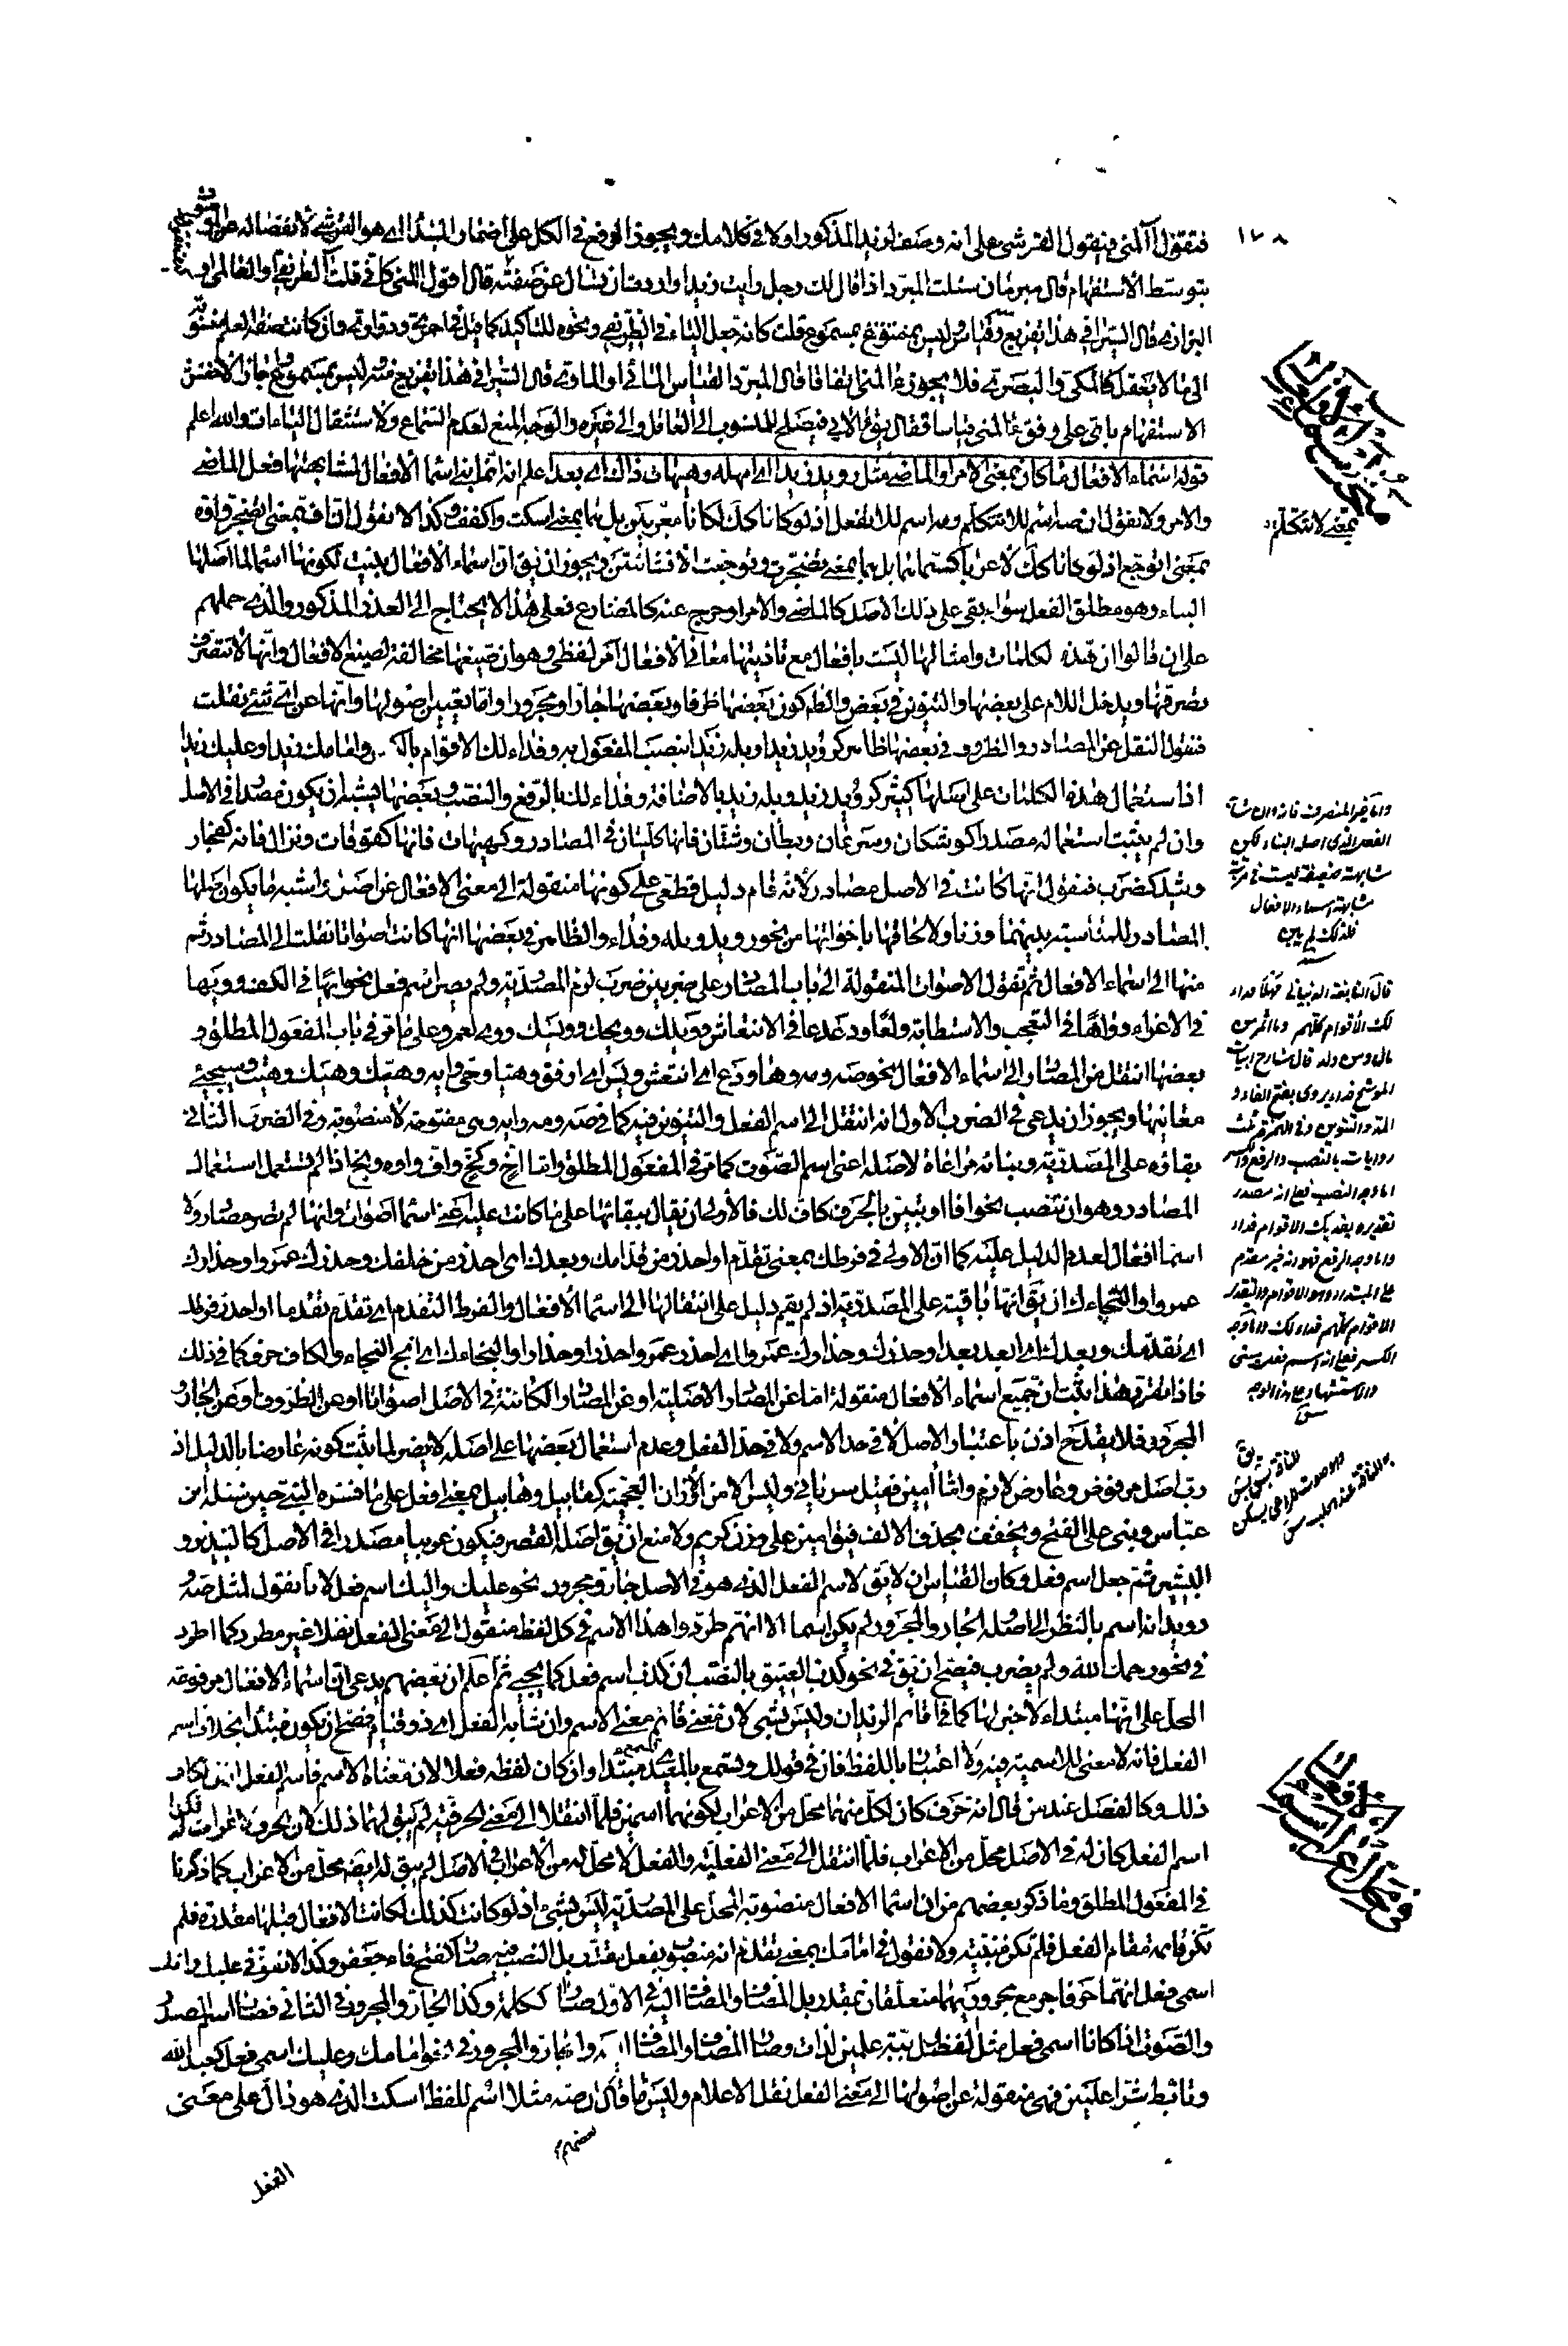 ١٧٨
فتقول آلمني فيقول القرشي على انه وصف لزيد المذكور اولا في كلامك ويجوز الرفع في الكل على اضمار المبتدا اي هو القرشي لانفصاله عن
بتوسط الاستفهام قال مبرمان سئلت المبرد اذا قال لك رجل رايت زيدا واردت ان تسال عن صفته قال اقول المني كما في قلت الظريفي او العالمي او
البزازي قال السيرافي هذا تفريع وقياس وليس بمسموع قلت كانه جعل الياء في الظريفي ونحوه للتاكيد كما قيل في احمري ودواري وان كانت صفة العلم منسوبة
الى ما لا يعقل كالمكي والبصري فلا يجوز المني اتفاقا قال المبرد القياس المائي او الماوي قال السيرافي هذا تفريع منه ليس بمسموع
الاستفهام باي على وفق المني قياسا فيصلح للمنسوب الى العاقل والى غيره والوجه المنع لعدم السماع ولاستثقال الياءات والله اعلم
قوله اسماء الافعال ما كان بمعنى الامر او الماضي مثل رويد زيدا اي امهله وهيهات ذاك اي بعد اعلم انه انما بني اسماء الافعال لمشابهتها فعل الماضي
والامر ولا نقول ان صه اسم للا تتكلم ومه اسم للا تفعل اذ لو كانا كك لكانا معربين بل هما بمعنى اسكت واكفف وكذا لا نقول ان اف بمعنى اتضجر واوه
بمعنى اتوجع اذ لو كانا كك لاعربا كمسماهما بل هما بمعنى تضجرت وتوجعت الانشائيين ويجوز ان يق ان اسماء الافعال بنيت لكونها اسماء لما اصله
البناء وهو مطلق الفعل سواء بقي على ذلك الاصل كالماضي والامر او خرج عنه كالمضارع فعلى هذا لا يحتاج الى العذر المذكور والذي حملهم
على ان قالوا ان هذه الكلمات وامثالها ليست بافعال مع تاديتها معاني الافعال امر لفظي وهو ان صيغها مخالفة لصيغ الافعال وانها لا تتصرف
تصرفها ويدخل اللام على بعضها والتنوين في بعض والظ كون بعضها ظرفا وبعضها جارا ومجرورا واما تعيين اصولها وانها عن اي شيء نقلت
فنقول النقل عن المصادر والظروف في بعضها ظاهر كرويد زيدا وبله زيدا بنصب المفعول به وفداء لك الاقوام بالكسر وامامك زيدا وعليك زيدا
اذ استعمال هذه الكلمات على اصلها كثير كرويد زيد وبله زيد بالاضافة وفداء لك بالرفع والنصب وبعضها يشبه ان يكون مصدرا في الاصل
وان لم يثبت استعماله مصدرا كوشكان وسرعان وبطان وشتان فانها كليان في المصادر وكهيهات فانها كقوقات ونزال فانه كفجار
وشبه كضرب فنقول انها كانت في الاصل مصادر لانه قام دليل قطعي على كونها منقولة الى معنى الافعال عن اصل واشبه ما يكون اصلها
المصادر للمناسبة بينهما وزنا ولالحاقها باخواتها من نحو رويد وبله وفداء والظاهر في بعضها انها كانت اصواتا نقلت الى المصادر ثم
منها الى اسماء الافعال ثم نقول الاصوات المنقولة الى باب المصادر على ضربين ضرب لزم المصدرية ولم يصر اسم فعل نحو ايها في الكف وويها
في الاغراء وواها في التعجب والاستطابة ولعا ودعدعا في الانتعاش وويلك وويحك وويسك ووي لعمرو على ما مر في باب المفعول المطلق و
بعضها انتقل من المصادر الى اسماء الافعال نحو صه ومه وها ودع اي انتعش وبس اي ارفق وهيا وحي وايه وهيك وهيت وسيجيء
معانيها ويجوز ان يدعى في الضرب الاول انه انتقل الى اسم الفعل والتنوين فيه كما في صه ومه وايه وهي مفتوحة لا منصوبة وفي الضرب الثاني
بقاؤه على المصدرية وبناؤه مراعاة لاصله اعني اسم الصوت كما مر في المفعول المطلق واما اخ وكخ واف واوه وبخ اذا لم تستعمل استعمال
المصادر وهو ان تنصب نحو افا او تبين بالحرف كاف لك فالاولى ان يقال ببقائها على ما كانت عليه اعني اسماء اصوات وانها لم تصر مصادر ولا
اسماء افعال لعدم الدليل عليه كما ان الاولى في فرطك بمعنى تقدم او احذر من قدامك وبعدك اي احذر من خلفك وحذرك عمروا وحذارك
عمروا والنجاءك ان يق انها باقية على المصدرية اذ لم يقم دليل على انتقالها الى اسماء الافعال والفرط التقدم اي تقدم تقدما او احذر فرطك
اي تقدمك وبعدك اي ابعد بعدا وحذرك وحذارك عمروا اي احذر عمروا حذرا وحذارا والنجاءك اي انج النجاء والكاف حرف كما في ذلك
فاذا تقرر هذا ثبت ان جميع اسماء الافعال منقولة اما عن المصادر الاصلية او عن المصادر الكائنة في الاصل اصواتا او عن الظروف او عن الجار و
المجرور فلا يقدح اذن باعتبار الاصل لا في حد الاسم ولا في حد الفعل وعدم استعمال بعضها على اصله لا يضر لما ثبت كونه عارضا بالدليل اذ
رب اصل مرفوض وعارض لازم واما امين فقيل سرياني وليس الا من الاوزان العجمية كقابيل وهابيل بمعنى افعل على ما فسره النبي حين سئله ابن
عباس وبني على الفتح ويخفف بحذف الالف فيق امين على وزن كريم ولا منع ان يق اصله القصر فيكون عربيا مصدرا في الاصل كالنذير و
النكير ثم جعل اسم فعل وكان القياس ان لا يق لاسم الفعل الذي هو في الاصل جار ومجرور نحو عليك واليك اسم فعل لانا نقول لمثل صه
رويد انه اسم بالنظر الى اصله الجار والمجرور لم يكن اسما الا انهم طردوا هذا الاسم في كل لفظ منقول الى معنى الفعل نقلا غير مطرد كما اطرد
في نحو رحمك الله ولم يضرب فيصح ان يق في نحو كذب العتيق بالنصب ان كذب اسم فعل كما يجيء ثم اعلم ان بعضهم يدعي ان اسماء الافعال مرفوعة
المحل على انها مبتداء لا خبر لها كما في اقائم الزيدان وليس بشيء لان معنى قائم معنى الاسم وان شابه الفعل اي ذو قيام فيصح ان يكون مبتدا بخلاف اسم
الفعل فانه لا معنى للاسمية فيه ولا اعتبار باللفظ فان في قولك تسمع بالمعيدي مبتدا وان كان لفظه فعلا لان معناه الاسم فاسم الفعل اذن ككاف
ذلك وكالفصل عند من قال انه حرف كان لكل منهما محل من الاعراب لكونهما اسمين فلما انتقلا الى معنى الحرفية لم يبق لهما ذلك لان الحروف لا اعراب لها فكذا
اسم الفعل كان له في الاصل محل من الاعراب فلما انتقل الى معنى الفعلية والفعل لا محل له من الاعراب في الاصل لم يبق له ايضا محل من الاعراب كما ذكرنا
في المفعول المطلق وما ذكر بعضهم من ان اسماء الافعال منصوبة المحل على المصدرية ليس بشيء اذ لو كانت كذلك لكانت الافعال قبلها مقدرة فلم
تكن قائمة مقام الفعل فلم تكن مبنية ولا نقول في امامك بمعنى تقدم انه منصوب بفعل مقدر بل النصب فيه صار كفتح فاء جعفر وكذا لا نقول في عليك واليك
اسمي فعل انهما حرفا جر مع مجروريهما متعلقان بمقدر بل المضاف والمضاف اليه في الاول صارا ككلمة وكذا الجار والمجرور في الثاني فصار اسم المصدر
والصوت اذا كانا اسمي فعل مثل لفظ علمين لذات وصار المضاف والمضاف اليه والجار والمجرور في نحو امامك وعليك اسمي فعل كعبد الله
وتابط شرا علمين فهي منقولة عن اصولها الى معنى الفعل نقل الاعلام وليس ما قال بعضهم ان صه مثلا اسم للفظ اسكت الذي هو دال على معنى
الفعل
بمعنى لا تتكلم
واما غير المنصرف فانه وان شابه
الفعل الذي اصله البناء لكن
مشابهته ضعيفة ليست في مرتبة
مشابهة اسماء الافعال
فلذلك لم يبن
قال النابغة الذبياني مهلا فداء
لك الاقوام كلهم وما اثمر من
مال ومن ولد قال شارح ابيات
الموشح فداء يروى بفتح الفاء و
المد والتنوين وفي الهمزة ثلث
روايات بالنصب والرفع والكسر
اما وجه النصب فعلى انه مصدر
تقديره يفديك الاقوام فداء
واما وجه الرفع فهو انه خبر مقدم
على المبتدا وهو الاقوام والتقدير
الاقوام كلهم فداء لك واما وجه
الكسر فعلى انه اسم فعل مبني
والاستشهاد على هذا الوجه